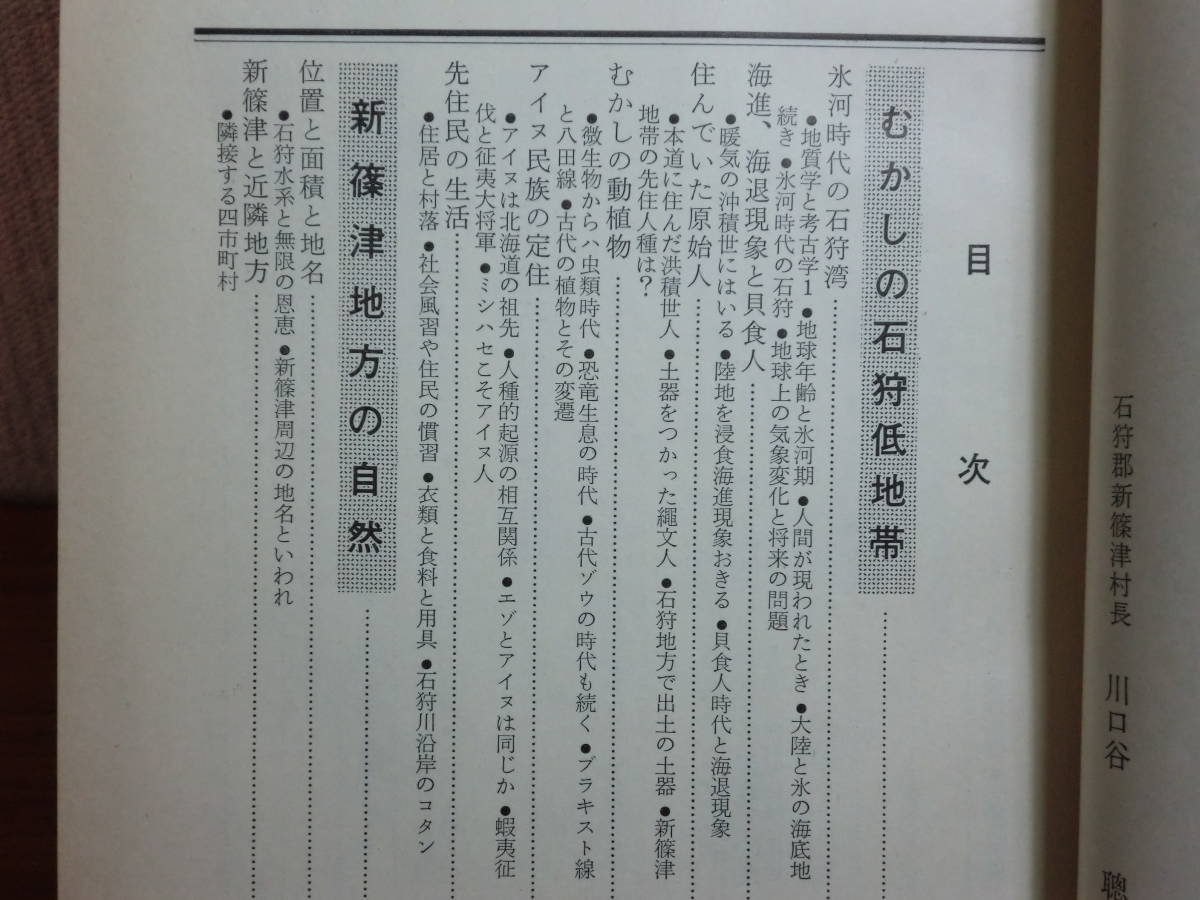 石狩郡新篠津村長　川口谷　聰
目次
むかしの石狩低地帯……
氷河時代の石狩湾……
●地質学と考古学1 ●地球年齢と氷河期 ●人間が現われたとき ●大陸と氷の海底地
続き ●氷河時代の石狩 ●地球上の気象変化と将来の問題
海進、海退現象と貝食人……
●暖気の沖積世にはいる ●陸地を浸食海進現象おきる ●貝食人時代と海退現象
住んでいた原始人……
●本道に住んだ洪積世人 ●土器をつかった繩文人 ●石狩地方で出土の土器 ●新篠津
地帯の先住人種は？
むかしの動植物……
●微生物からハ虫類時代 ●恐竜生息の時代 ●古代ゾウの時代も続く ●ブラキスト線
と八田線 ●古代の植物とその変遷
アイヌ民族の定住……
●アイヌは北海道の祖先 ●人種的起源の相互関係 ●エゾとアイヌは同じか ●蝦夷征
伐と征夷大将軍 ●ミシハセこそアイヌ人
先住民の生活……
●住居と村落 ●社会風習や住民の慣習 ●衣類と食料と用具 ●石狩川沿岸のコタン
新篠津地方の自然……
位置と面積と地名……
●石狩水系と無限の恩恵 ●新篠津周辺の地名といわれ
新篠津と近隣地方……
●隣接する四市町村